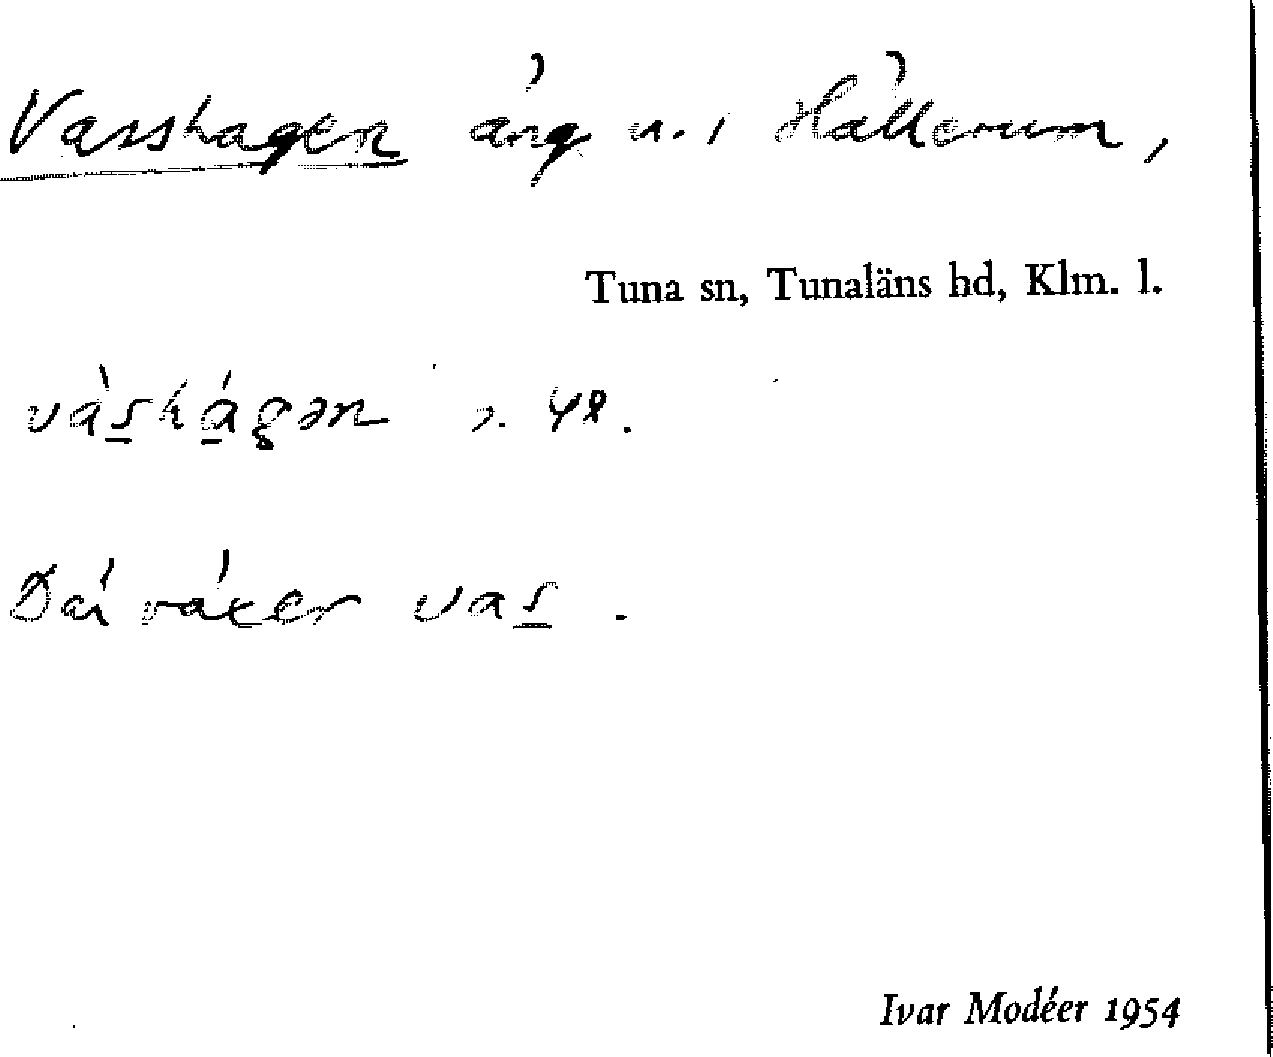 Vasshagen äng u. i Hällerum,
Tuna sn, Tunaläns hd, Klm. l.
vàshágən
Där växer vas.
Ivar Modéer 1954